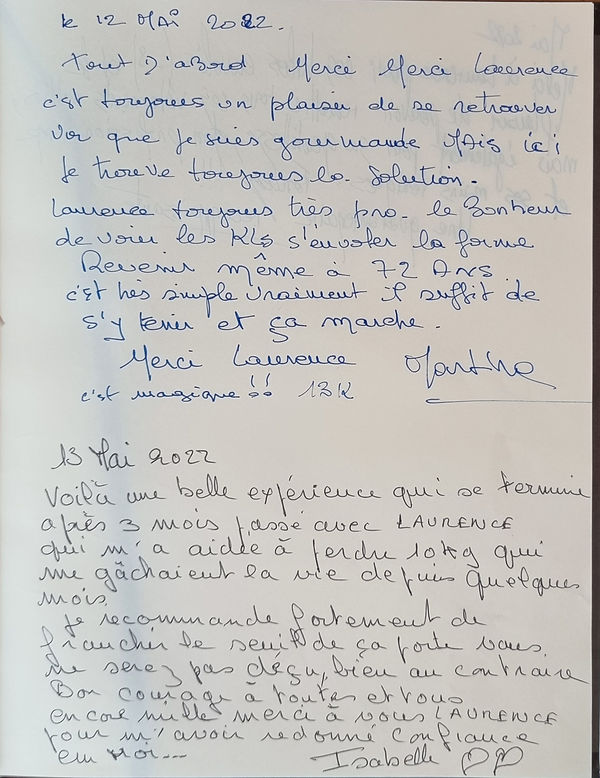 le 12 MAi 2022.
Tout D'aBord Merci Merci Laurence
c'est toujours un plaisir de se retrouver
voir que je suis gourmande MAis ici
je trouve toujours la solution.
Laurence toujours très pro. le Bonheur
de voir les Kls s'envoler la forme
Revenir même à 72 Ans
c'est très simple vraiment il suffit de
s'y tenir et ça marche.
Merci Laurence Martine
c'est magique !! 13K
13 Mai 2022
Voilà une belle expérience qui se termine
après 3 mois passé avec LAURENCE
qui m'a aidée à perdre 10kg qui
me gâchaient la vie depuis quelques
mois.
Je recommande fortement de
franchir le seuil de sa porte vous
ne serez pas déçu, bien au contraire
Bon courage à toutes et tous
encore mille merci à vous LAURENCE
pour m'avoir redonné confiance
em moi... Isabelle